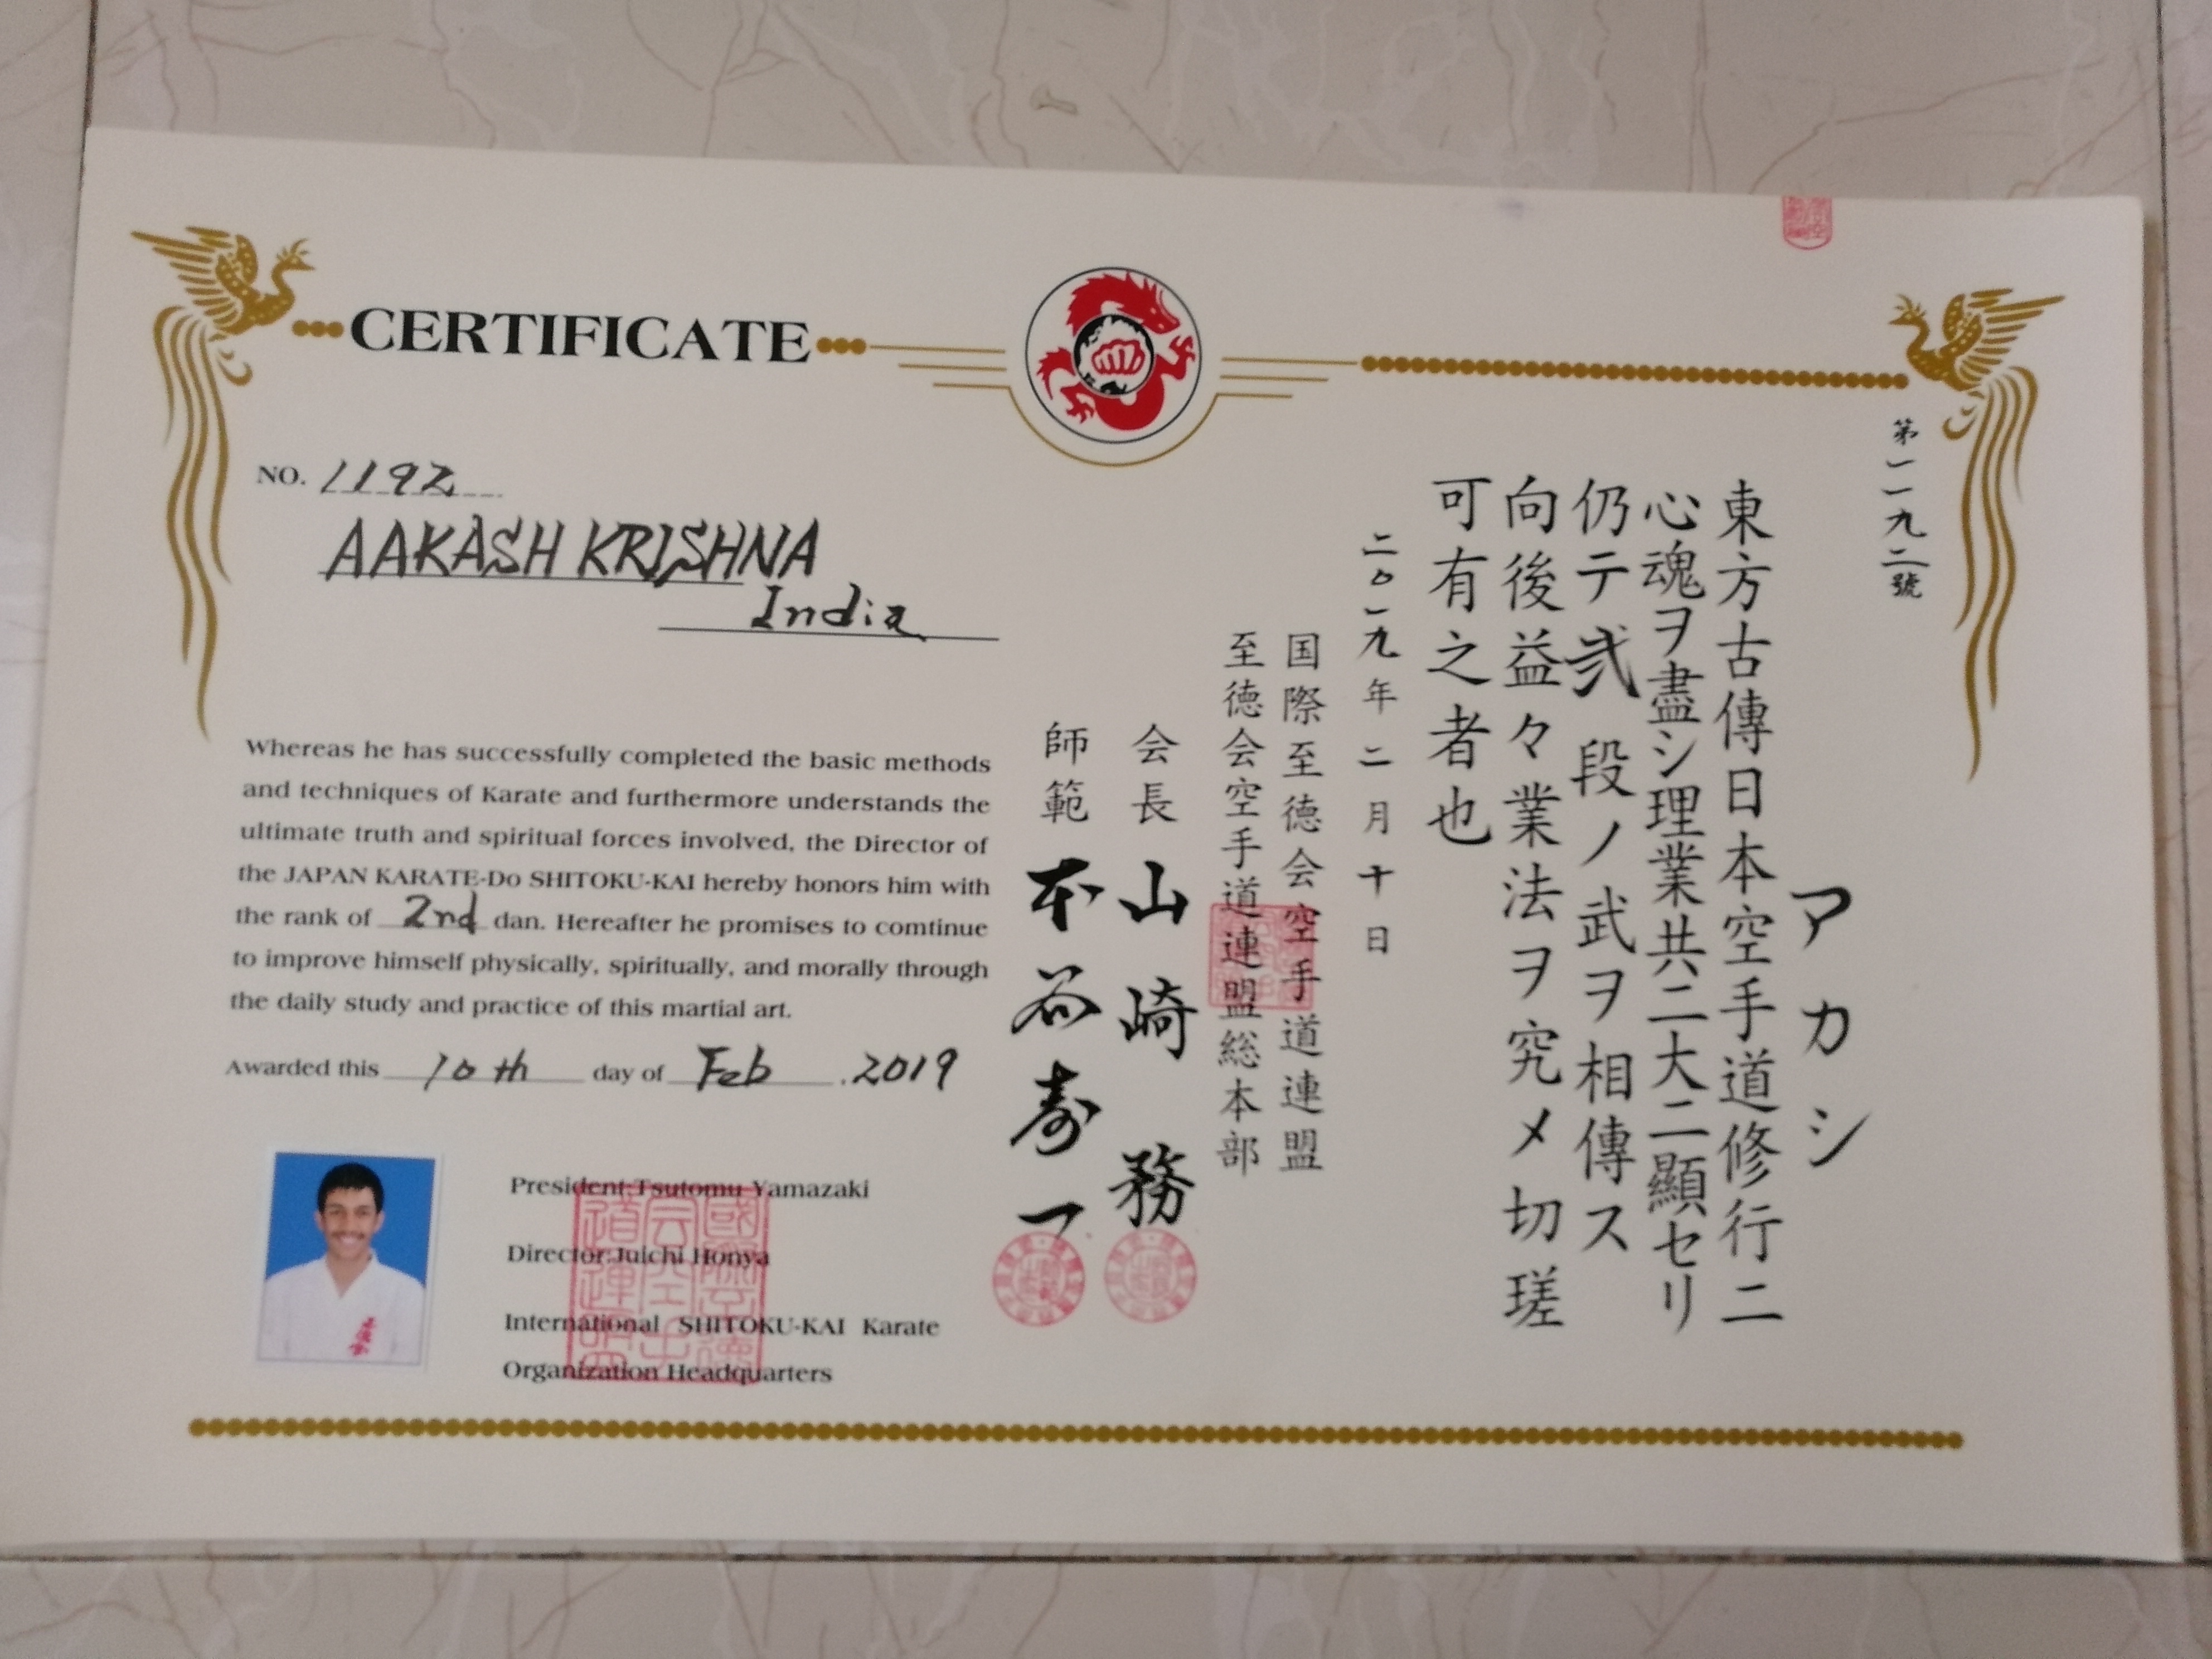 CERTIFICATE
NO. 1192
AAKASH KRISHNA
India
Whereas he has successfully completed the basic methods
and techniques of Karate and furthermore understands the
ultimate truth and spiritual forces involved, the Director of
the JAPAN KARATE-DO SHITOKU-KAI hereby honors him with
the rank of 2nd dan. Hereafter he promises to comtinue
to improve himself physically, spiritually, and morally through
the daily study and practice of this martial art.
Awarded this 10th day of Feb .2019
President:Tsutomu Yamazaki
Director:Juichi Honya
International SHITOKU-KAI Karate
Organization Headquarters
國際至德
会空手
道連盟
第一一九二號
アカシ
東方古傳日本空手道修行ニ
心魂ヲ盡シ理業共ニ大ニ顯セリ
仍テ弐段ノ武ヲ相傳ス
向後益々業法ヲ究メ切瑳
可有之者也
二〇一九年二月十日
国際至徳会空手道連盟
至徳会空手道連盟総本部
会長 山崎務
師範 本谷寿一